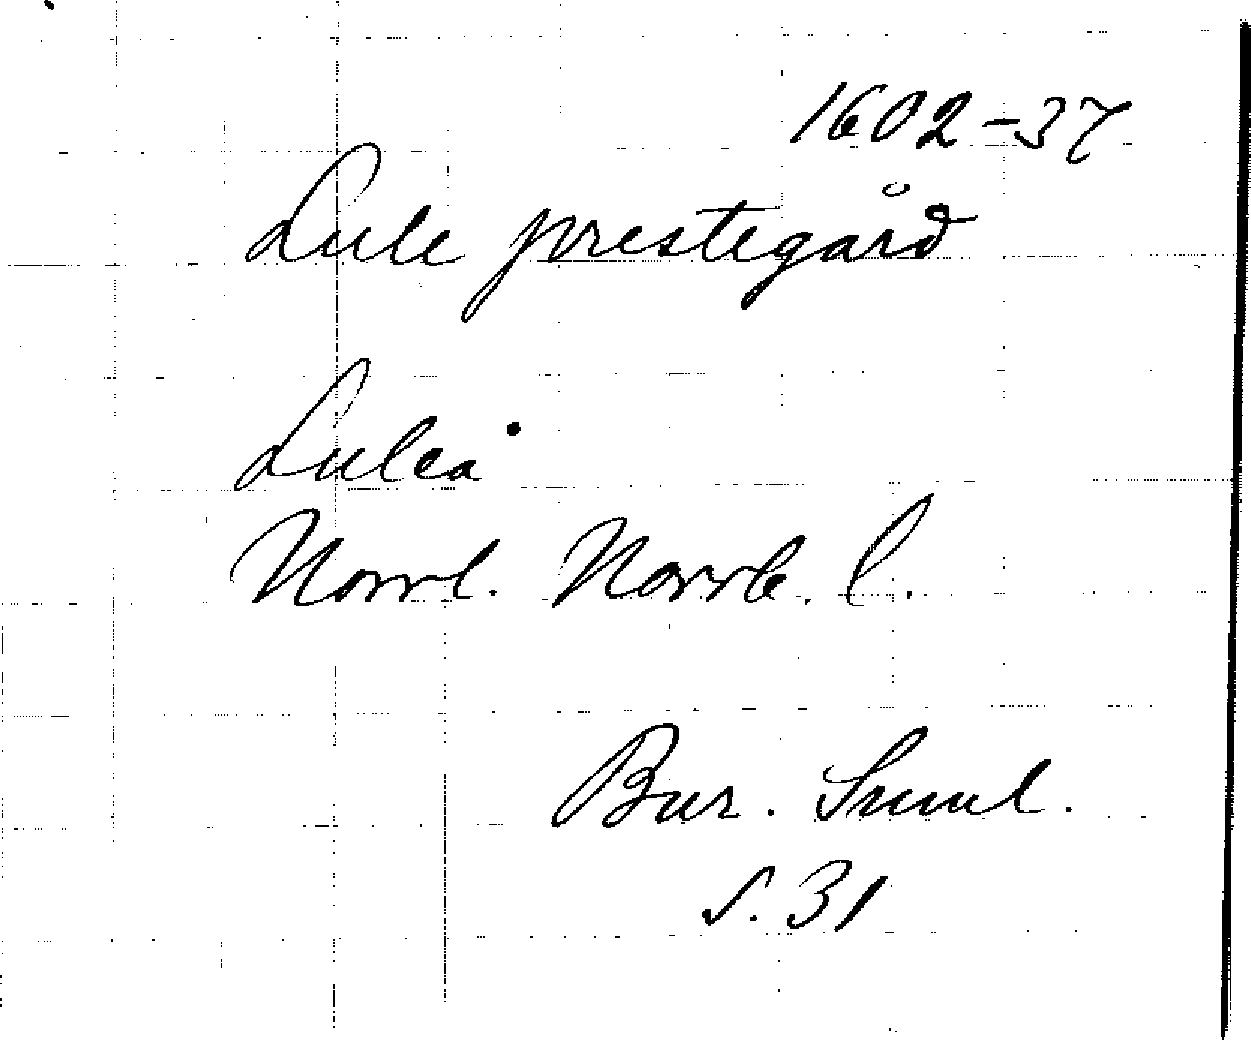 1602-37
Lule prestegård
Luleå
Norrl. Norrb. l.
Bur. Suml.
s. 31